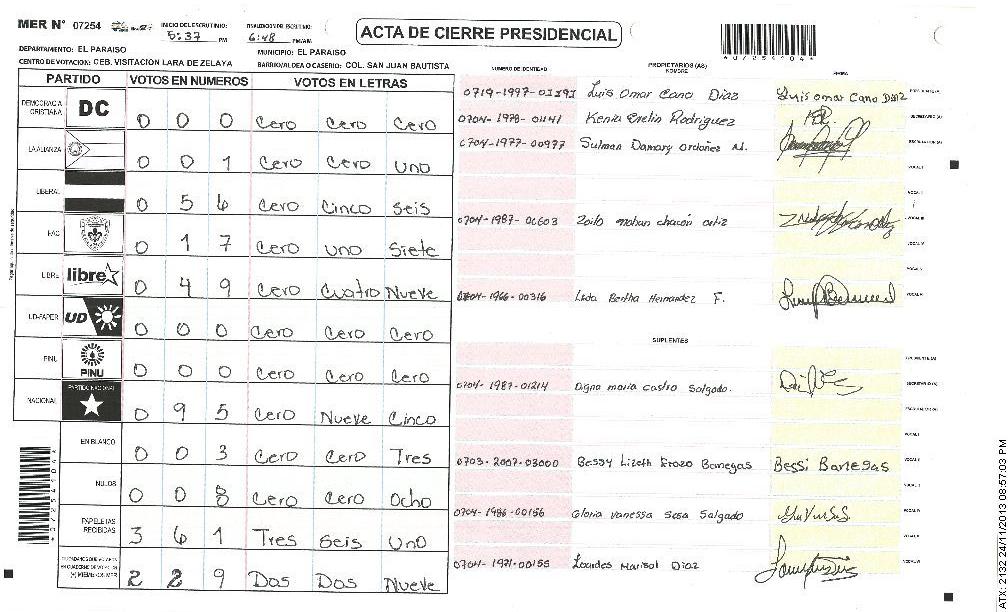 MER N° 07254
INICIO DEL ESCRUTINIO: 5:37 PM
FINALIZACION DEL ESCRUTINIO: 6:48 PM/AM
ACTA DE CIERRE PRESIDENCIAL
DEPARTAMENTO: EL PARAISO
MUNICIPIO: EL PARAISO
CENTRO DE VOTACION: CEB. VISITACION LARA DE ZELAYA
BARRIO/ALDEA O CASERIO: COL. SAN JUAN BAUTISTA
PARTIDO VOTOS EN NUMEROS VOTOS EN LETRAS
DEMOCRACIA CRISTIANA DC 0 0 0 Cero Cero Cero
LA ALIANZA 0 0 1 Cero Cero Uno
LIBERAL 0 5 6 Cero Cinco Seis
PAC 0 1 7 Cero Uno Siete
LIBRE libre 0 4 9 Cero Cuatro Nueve
UD-FAPER UD 0 0 0 Cero Cero Cero
PINU PINU 0 0 0 Cero Cero Cero
NACIONAL PARTIDO NACIONAL 0 9 5 Cero Nueve Cinco
EN BLANCO 0 0 3 Cero Cero Tres
NULOS 0 0 8 Cero Cero Ocho
PAPELETAS RECIBIDAS 3 6 1 Tres Seis Uno
2 2 9 Dos Dos Nueve
NUMERO DE IDENTIDAD PROPIETARIOS (AS) NOMBRE FIRMA
Luis Omar Cano Diaz Luis Omar Cano Diaz
0704-1978-01141 Kenia Evelin Rodriguez SECRETARIO (A)
0704-1977-00977 Sulman Damary Ordoñez M. ESCRUTADOR (A)
VOCAL I
VOCAL II
0704-1987-00603 VOCAL III
VOCAL IV
VOCAL V
0704-1966-00316 Bertha Hernandez F.
SUPLENTES
PRESIDENTE (A)
0704-1987-01214 Digna maria castro Salgado. SECRETARIO (A)
ESCRUTADOR (A)
VOCAL I
0703-2007-03000 Bessy Lizeth Erazo Banegas Bessi Banegas VOCAL II
0704-1986-00156 Gloria Vanessa Sosa Salgado
0704-1971-00155 Lourdes Marisol Diaz
ATX: 2132 24/11/2013 08:57:03 PM